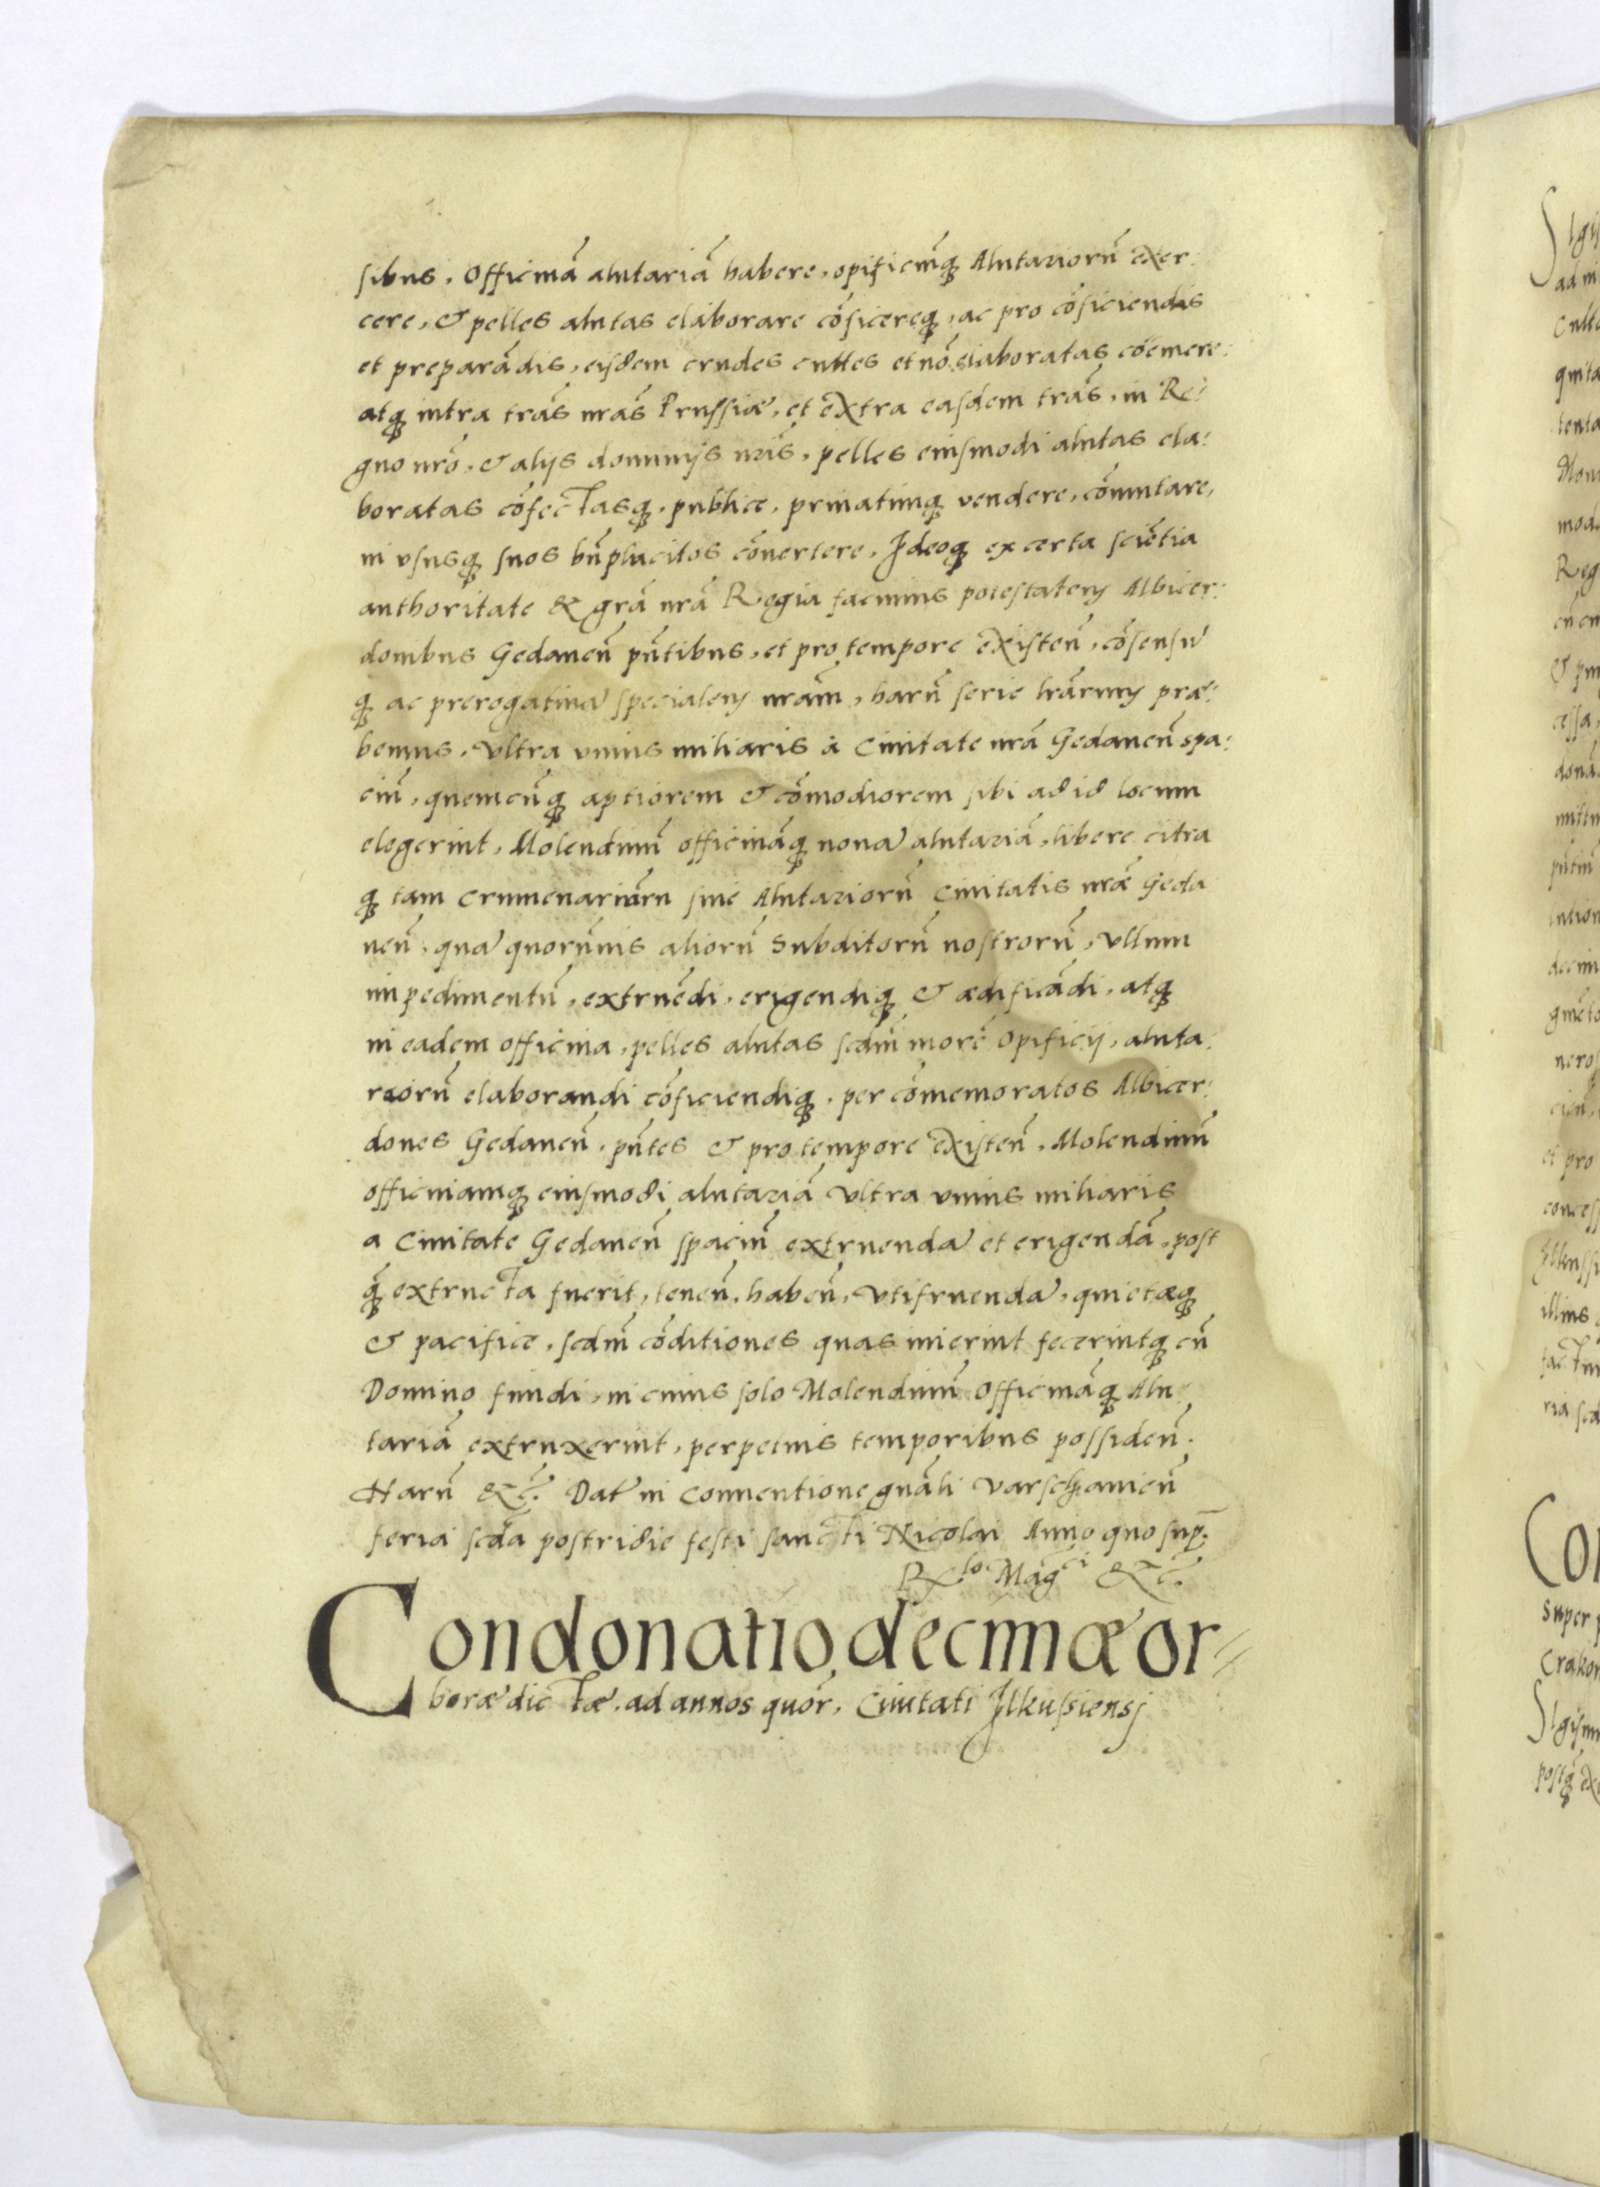 sibus, Officinā alutariā habere, opificiūq́ꝫ Alutariorū exer-
cere, & pelles alutas elaborare cōficereq́ꝫ, ac pro cōficiendis
et preparādis, eisdem crudes cuttes et nō elaboratas cōemere:
atq́ꝫ intra trās nrās Prussiæ, et extra easdem trās, in Re-
gno nrō, & alijs dominijs nrīs, pelles eiusmodi alutas ela-
boratas cōfectasq́ꝫ, publice, priuatimq́ꝫ vendere, cōmutare,
in vsusq́ꝫ suos bn̄placitos cōuertere, Ideoq́ꝫ ex certa sciētia
authoritate & grā nrā Regia facimus potestatem Albicer-
donibus Gedanen̄ pn̄tibus, et pro tempore existen̄, cōsensū
q́ꝫ ac prerogatiuā specialem nrām, harū serie lrārum præ-
bemus, vltra vnius miliaris à Ciuitate nrā Gedanen̄ spa-
ciū, quemcūq́ꝫ aptiorem & cōmodiorem sibi ad id locum
elegerint, Molendinū officināq́ꝫ nouā alutariā, libere citra
q́ꝫ tam Crumenariorū siue Alutariorū Ciuitatis nrǣ Geda
nen̄, quā quorūuis aliorū Subditorū nostrorū, vllum
impedimentū, extruēdi, erigendiq́ꝫ & ædificādi, atq́ꝫ
in eadem officina, pelles alutas scdm̄ morē opificij, aluta-
riorū elaborandi cōficiendiq́ꝫ, per cōmemoratos Albicer-
dones Gedanen̄, pn̄tes & pro tempore existen̄, Molendinū
officinamq́ꝫ eiusmodi alutariā vltra vnius miliaris
a Ciuitate Gedanen̄ spaciū extruendā et erigendā, post
q́ꝫ extructa fuerit, tenen̄, haben̄, vtifruendā, quietæq́ꝫ
& pacifice, scdm̄ cōditiones quas inierint fecerintq́ꝫ cū
Domino fundi, in cuius solo Molendinū Officināq́ꝫ Alu-
tariā extruxerint, perpetuis temporibus possiden̄.
Harū &c̄. Dat̄ in Conuentione gnāli Varschauien̄
feria scdā postridie festi sancti Nicolai Anno quo sup̄.
Rlo Magci &c̄.
Condonatio decimæ or-
boræ dictæ, ad annos quōr, Ciuitati Jlkussiensj